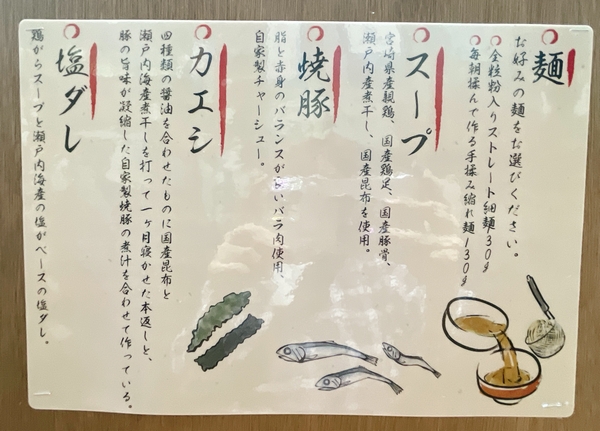 麺
お好みの麺をお選びください。
全粒粉入りストレート細麺130g
毎朝揉んで作る手揉み縮れ麺130g
スープ
宮崎県産親鶏、国産鶏足、国産豚骨、
瀬戸内産煮干し、国産昆布を使用。
焼豚
脂と赤身のバランスが良いバラ肉使用、
自家製チャーシュー。
カエシ
四種類の醤油を合わせたものに国産昆布と
瀬戸内海産煮干しを打って一ヶ月寝かせた本返しと、
豚の旨味が凝縮した自家製焼豚の煮汁を合わせて作っている。
塩ダレ
鶏がらスープと瀬戸内海産の塩がベースの塩ダレ。